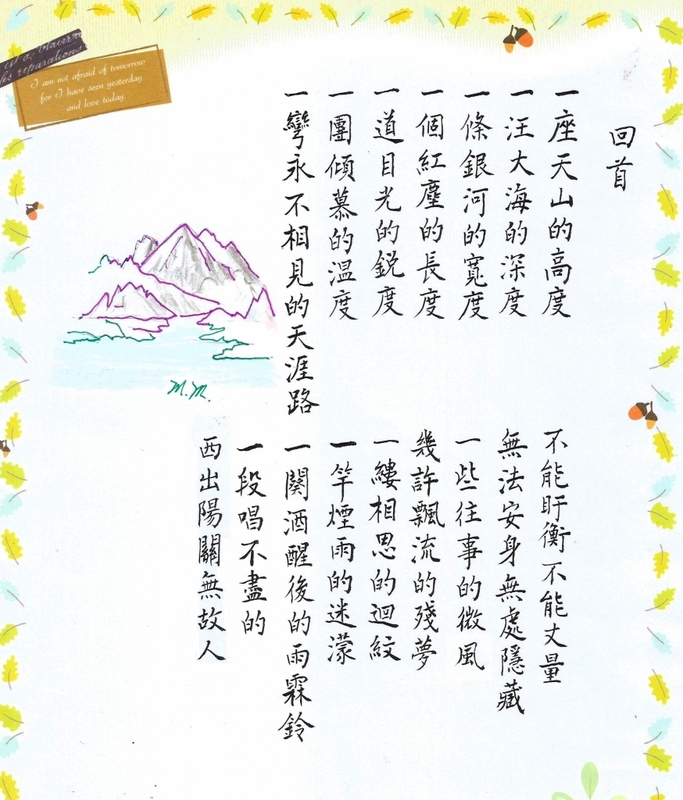 回首
一座天山的高度
一汪大海的深度
一條銀河的寬度
一個紅塵的長度
一道目光的銳度
一團傾慕的溫度
一彎永不相見的天涯路
不能盱衡不能丈量
無法安身無處隱藏
一些往事的微風
幾許飄流的殘夢
一縷相思的迴紋
一竿煙雨的迷濛
一闋酒醒後的雨霖鈴
一段唱不盡的
西出陽關無故人
I am not afraid of tomorrow
for I have seen yesterday
and love today.
M.M.